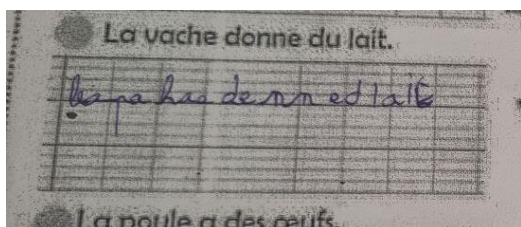 La vache donne du lait.
lapa hao denn ed lait
La poule a des œufs.